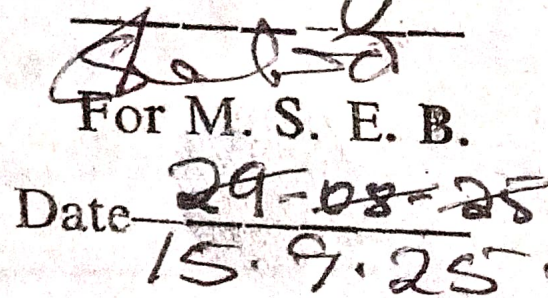 For M. S. E. B.
Date 29-08-25
15.9.25.